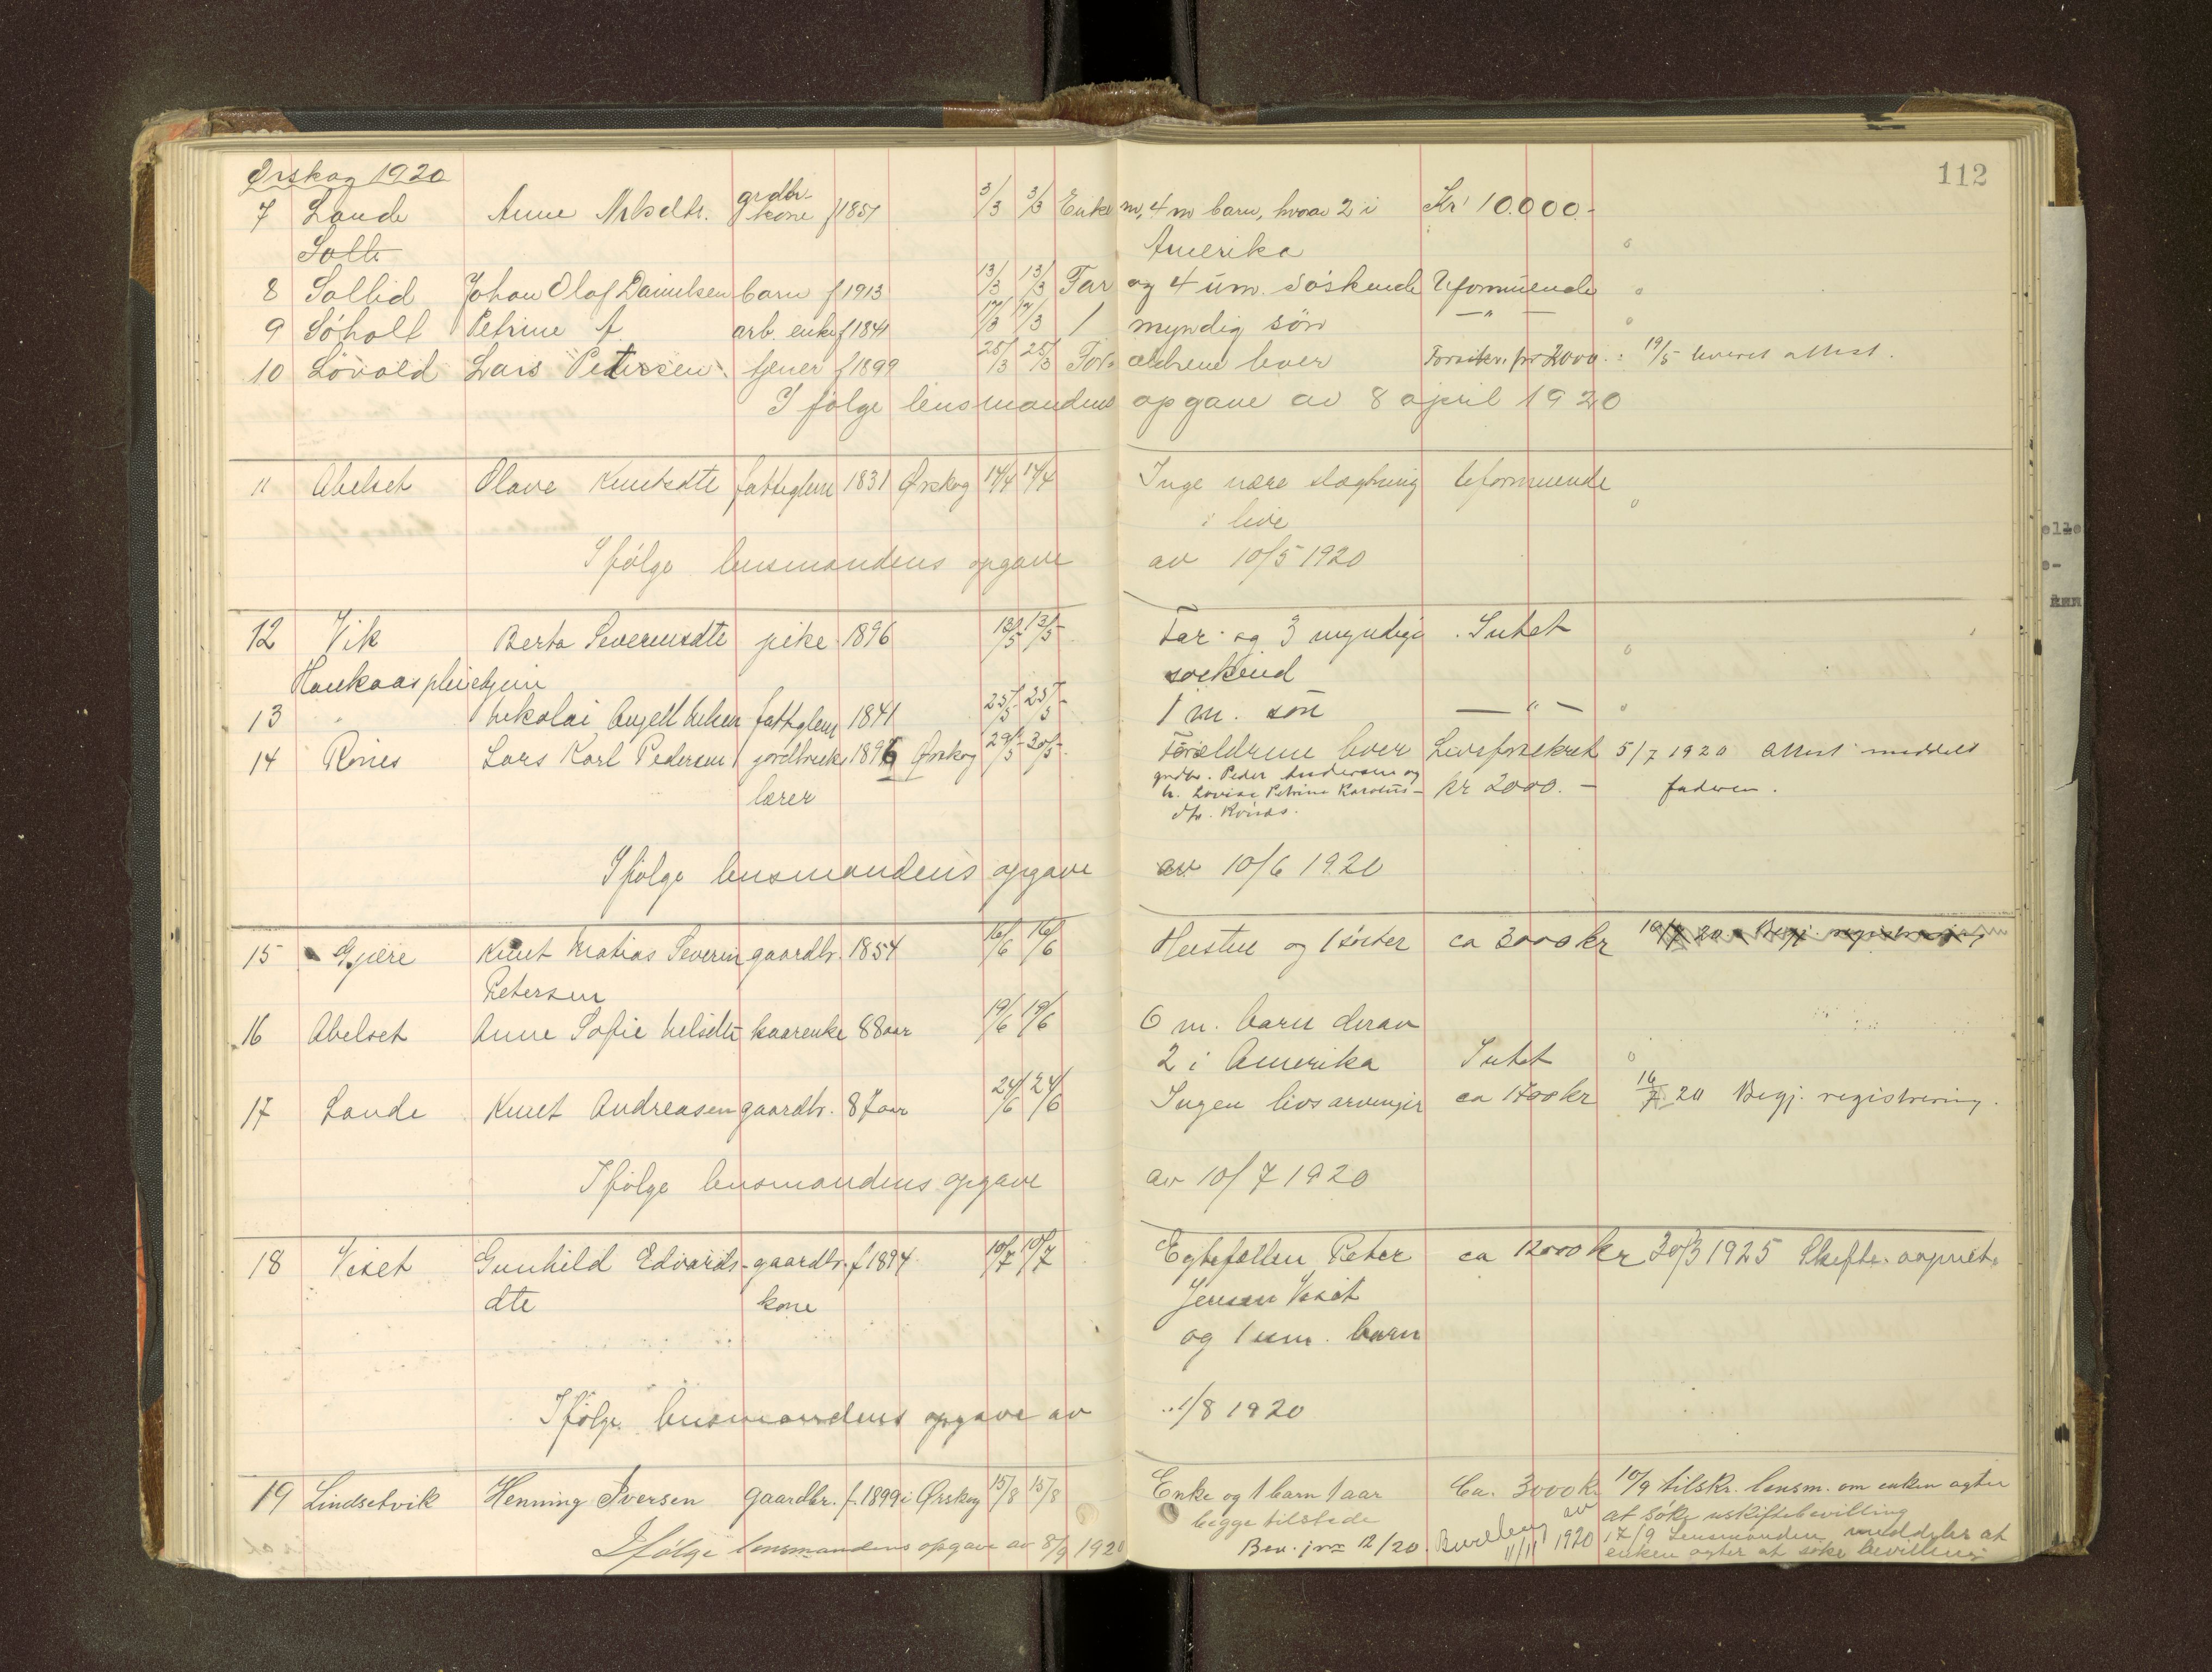 112
Ørskog 1920
7 Lande Anne Nilsdtr. grdbr. kone f 1851 3/3 3/3 Enke m, 4 m barn, hvorav 2 i Kr 10.000.-
Solli Amerika
8 Sollid Johan Olaf Danielsen barn f 1913 13/3 13/3 Far og 4 um. söskende Uformuende
9 Söholt Petrine A. arb. enke f 1841 17/3 17/3 1 myndig sön — " —
10 Lövold Lars Petersen tjener f 1899 25/3 25/3 For- ældrene lever Forsikr. for 2000. 19/5 leveret attest.
I følge lensmandens opgave av 8 april 1920
11 Abelset Olave Knutsdte fattiglem 1831 Ørskog 14/4 14/4 Inge nære slægtning Uformuende
i live
Ifølge lensmandens opgave av 10/5 1920
12 Vik Berta Severinsdte pike 1896 13/5 13/5 Far og 3 myndige Intet
Haukaas pleiehjem søskend
13 " Nikolai Angell Nilsen fattiglem 1841 25/5 25/5 1 m. sön — " —
14 Rönes Lars Karl Pedersen jordbruks 1896 Ørskog 29/5 30/5 Forældrene lever Livsforsikret 5/7 1920 Attest meddelt
lærer grdbr. Peder Andersen og kr 2000.— faderen.
h. Lovise Petrine Karolus-
dtr. Rönes.
Ifølge lensmandens opgave av 10/6 1920
15 Gjære Knut Matias Severin gaardbr. 1854 16/6 16/6 Hustru og 1 söster ca 3000 kr 10/7 20. Begj. registrering
Petersen
16 Abelset Anne Sofie Nilsdte kaarenke 88 aar 19/6 19/6 6 m. barn derav
2 i Amerika Intet
17 Lande Knut Andreasen gaardbr. 87 aar 24/6 24/6 Ingen livsarvinger ca 1700 kr 16/7 20 Begj. registrering.
Ifølge lensmandens opgave av 10/7 1920
18 Viset Gunhild Edvards- gaardbr. f 1894 10/7 10/7 Egtefællen Peter ca 12000 kr 30/3 1925 Skifte.
dte kone Jensen Viset
og 1 um. barn
Ifølge lensmandens opgave av 1/8 1920
19 Lindsetvik Henning Iversen gaardbr. f. 1899 i Ørskog 15/8 15/8 Enke og 1 barn 1 aar Ca. 3000 k. 10/9 tilskr. lensm. om enken agter
begge tilstede at söke uskiftebevilling
Ifølge lensmandens opgave av 8/9 1920 Bev. jnr 12/20. Bevilling av 11/11 1920 17/9 Lensmanden meddeler at
enken agter at söke bevilling